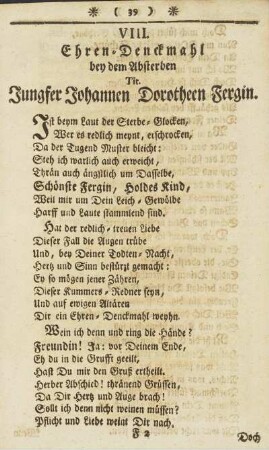 ( 39 )
VIII.
Ehren-Denckmahl
bey dem Absterben
Tit.
Jungfer Johannen Dorotheen Fergin.
Ist beym Laut der Sterbe-Glocken,
Wer es redlich meynt, erschrocken,
Da der Tugend Muster bleicht:
Steh ich warlich auch erweicht,
Thrän auch ängstlich um Dasselbe,
Schönste Fergin, Holdes Kind,
Weil mir um Dein Leich-Gewölbe
Harff und Laute stammlend sind.
Hat der redlich-treuen Liebe
Dieser Fall die Augen trübe
Und, bey Deiner Todten-Nacht,
Hertz und Sinn bestürzt gemacht:
Ey so mögen jener Zähren,
Dieser Kummers-Redner seyn,
Und auf ewigen Altären
Dir ein Ehren-Denckmahl weyhn.
Wein ich denn und ring die Hände?
Freundin! Ja: vor Deinem Ende,
Eh du in die Grufft geeilt,
Hast Du mir den Gruß ertheilt.
Herber Abschied! thränend Grüssen,
Da Dir Hertz und Auge brach!
Sollt ich denn nicht weinen müssen?
Pflicht und Liebe weint Dir nach,
F 2 Doch